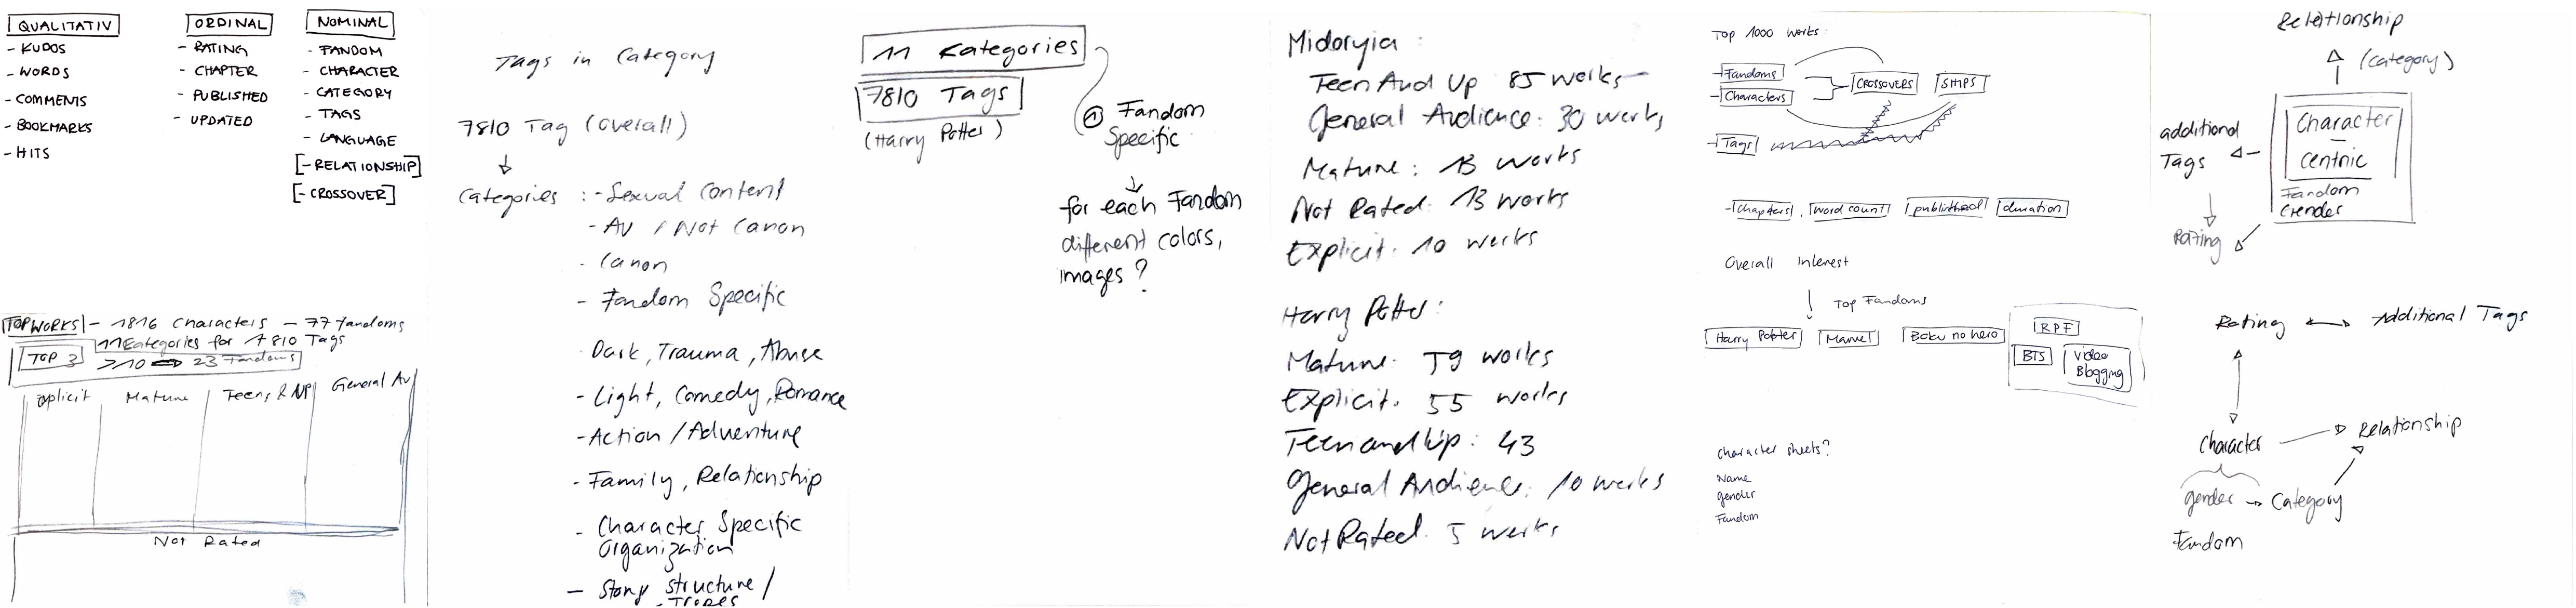 QUALITATIV
- KUDOS
- WORDS
- COMMENTS
- BOOKMARKS
- HITS
ORDINAL
- RATING
- CHAPTER
- PUBLISHED
- UPDATED
NOMINAL
- FANDOM
- CHARACTER
- CATEGORY
- TAGS
- LANGUAGE
[- RELATIONSHIP]
[- CROSSOVER]
TOP WORKS - 1816 Characters - 77 fandoms
11 Categories for 7810 Tags
TOP 3 >10 23 Fandoms
explicit Mature Teens & Up General Au
Not Rated
Tags in Category
7810 Tag (Overall)
Categories : - Sexual Content
- AU / Not Canon
- Canon
- Fandom Specific
Dark, Trauma, Abuse
- Light, Comedy, Romance
- Action / Adventure
- Family, Relationship
- Character Specific
Organization
- Story structure /
- Tropes
11 Kategories
7810 Tags
(Harry Potter)
① Fandom
Specific
for each Fandom
different colors,
images?
Midoryia :
Teen And Up 85 works
General Audience: 30 works
Mature : 13 works
Not Rated: 13 works
Explicit: 10 works
Harry Potter:
Mature: 59 works
Explicit: 55 works
Teen and Up: 43
General Audience: 10 works
Not Rated: 5 works
Top 1000 works:
- Fandoms
- Characters
CROSSOVERS SHIPS
- Tags
- Chapters, word count published duration
Overall Interest
Top Fandoms
Harry Potter Marvel Boku no hero
RPF
BTS Video
Blogging
character sheets?
Name
gender
Fandom
Relationship
(Category)
additional
Tags
Character
- centric
Fandom
Gender
Rating
Rating Additional Tags
Character Relationship
gender Category
Fandom